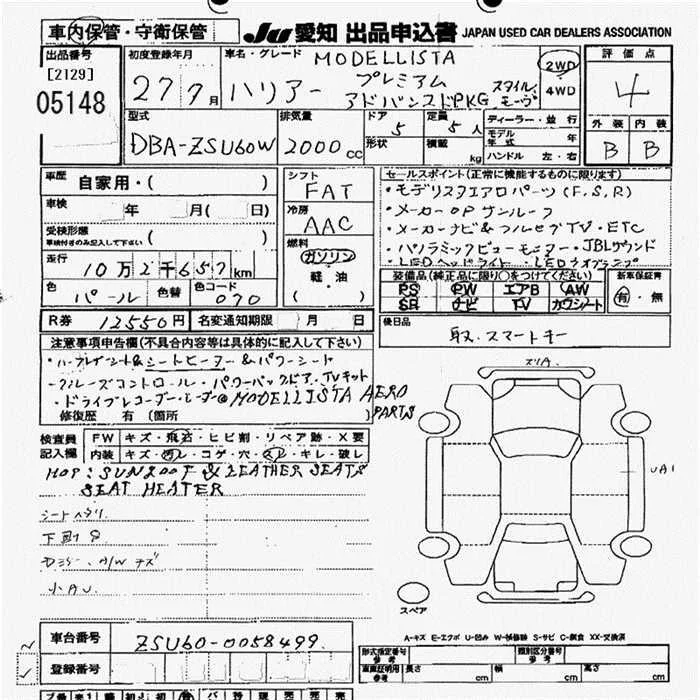 車内保管・守衛保管
JU 愛知 出品申込書 JAPAN USED CAR DEALERS ASSOCIATION
出品番号
[2129]
05148
初度登録年月
27 7月
車名・グレード
MODELLISTA
ハリアー プレミアム
アドバンスドPKG
スタイル モーヴ
2WD
4WD
評価点
4
外装 内装
B B
型式
DBA-ZSU60W
排気量
2000cc
ドア
5
定員
5人
形状
積載
kg
ディーラー・並行
モデル年式 年
ハンドル 左・右
車歴
自家用・( )
車検
年 月( 日)
受検形態
車検付きのみ記入して下さい ( )
走行
10万2千657km
色
パール
色替
色コード
070
シフト
FAT
冷房
AAC
燃料
ガソリン
軽・油
( )
セールスポイント(正常に機能するものに限ります)
・モデリスタエアロパーツ(F,S,R)
・メーカーOPサンルーフ
・メーカーナビ&フルセグTV・ETC
・パノラミックビューモニター・JBLサウンド
・LEDヘッドライト
装備品(純正品に限り○をつけてください)
PS PW エアB AW
SR ナビ TV カワシート
新車保証書
有・無
R券 12550円
名変通知期限 月 日
後日品
取・スマートキー
注意事項申告欄(不具合内容等は具体的に記入して下さい)
・ハーフレザーシート&シートヒーター&パワーシート
・クルーズコントロール・パワーバックドア・TVキット
・ドライブレコーダー MODELLISTA AERO PARTS
修復歴 有 (箇所 )
検査員記入欄
FW キズ・飛石・ヒビ割・リペア跡・X要
内装 キズ・汚レ・コゲ・穴・スレ・キレ・破レ
MOP:SUNROOF & LEATHER SEATS
SEAT HEATER
シートヘタリ
下回り
A/Wキズ
小AU
スリA.
UA1
スペア
車台番号 ZSU60-0058499
登録番号
A-キズ E-エクボ U-凹み W-補修跡 S-サビ C-腐食 XX-交換済
型式指定番号 参考
類別区分番号 参考
車庫証明用 参考
長さ cm
幅 cm
高さ cm